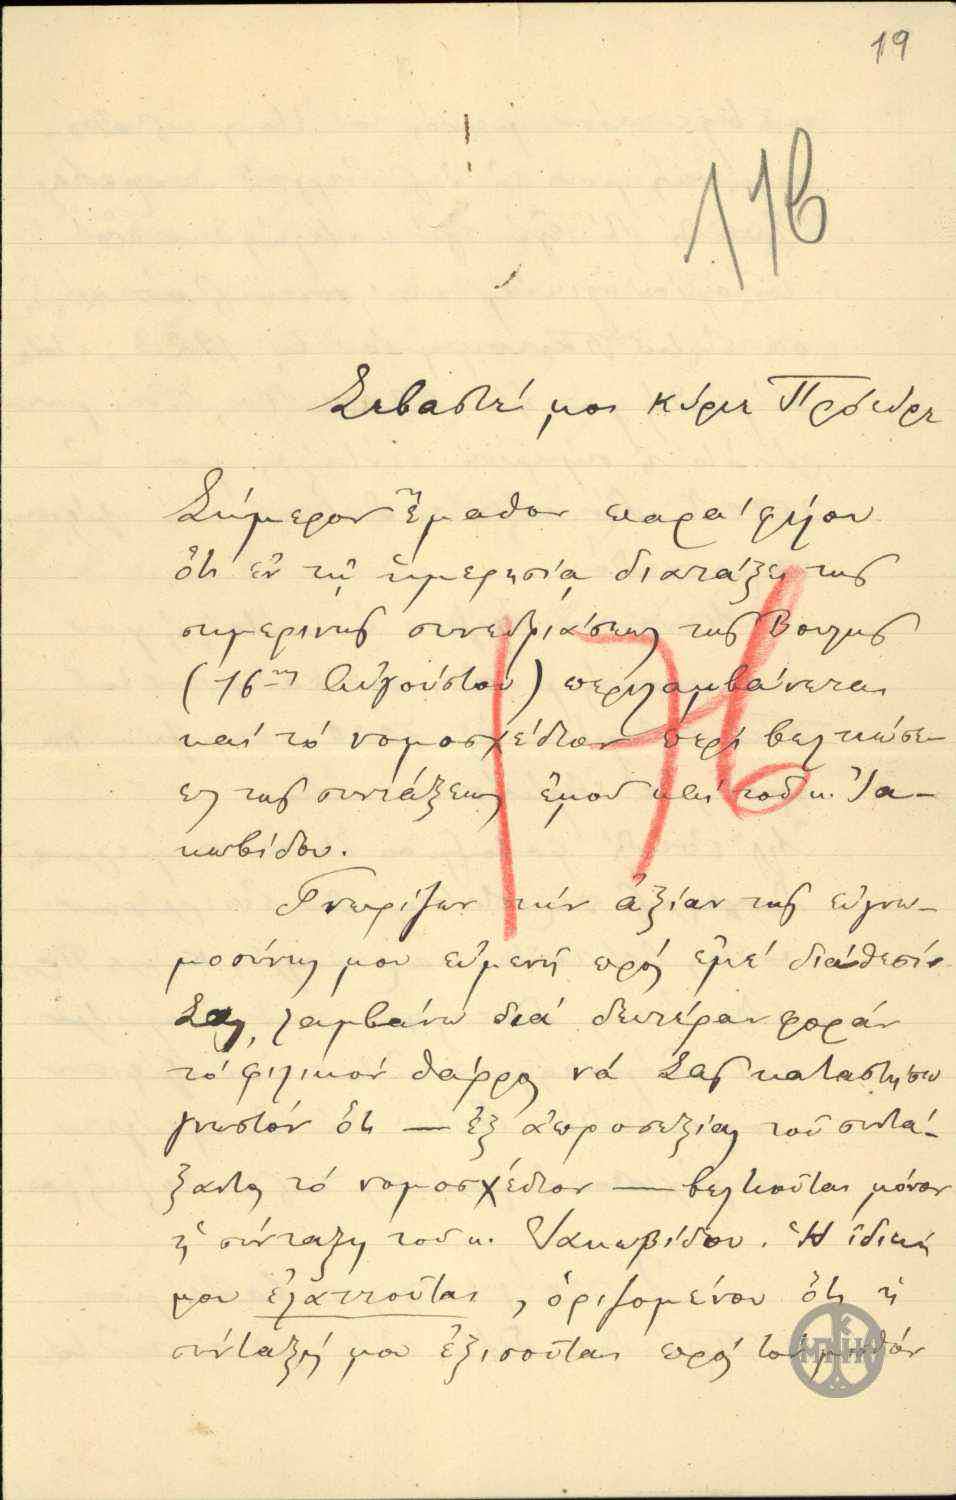 19
176
Σεβαστέ μοι κύριε Πρόεδρε
Σήμερον ἔμαθον παρὰ φίλου
ὅτι ἐν τῇ ἡμερησίᾳ διατάξει τῆς
σημερινῆς συνεδριάσεως τῆς Βουλῆς
(16ην Αὐγούστου) περιλαμβάνεται
καὶ τὸ νομοσχέδιον περὶ βελτιώσε-
ως τῆς συντάξεως ἐμοῦ καὶ τοῦ κ. Ἰα-
κωβίδου.
176
Γνωρίζων τὴν ἀξίαν τῆς εὐγνω-
μοσύνης μου εὐμενῆ πρὸς ἐμὲ διάθεσίν
Σας, λαμβάνω διὰ δευτέραν φορὰν
τὸ φιλικὸν θάρρος νὰ Σᾶς καταστήσω
γνωστὸν ὅτι — ἐξ ἀπροσεξίας τοῦ συντά-
ξαντος τὸ νομοσχέδιον — βελτιοῦται μόνον
ἡ σύνταξη τοῦ κ. Ἰακωβίδου. Ἡ ἰδική
μου ἐλαττοῦται, ὁριζομένου ὅτι ἡ
σύνταξή μου ἐξισοῦται πρὸς τὸν μισθὸν